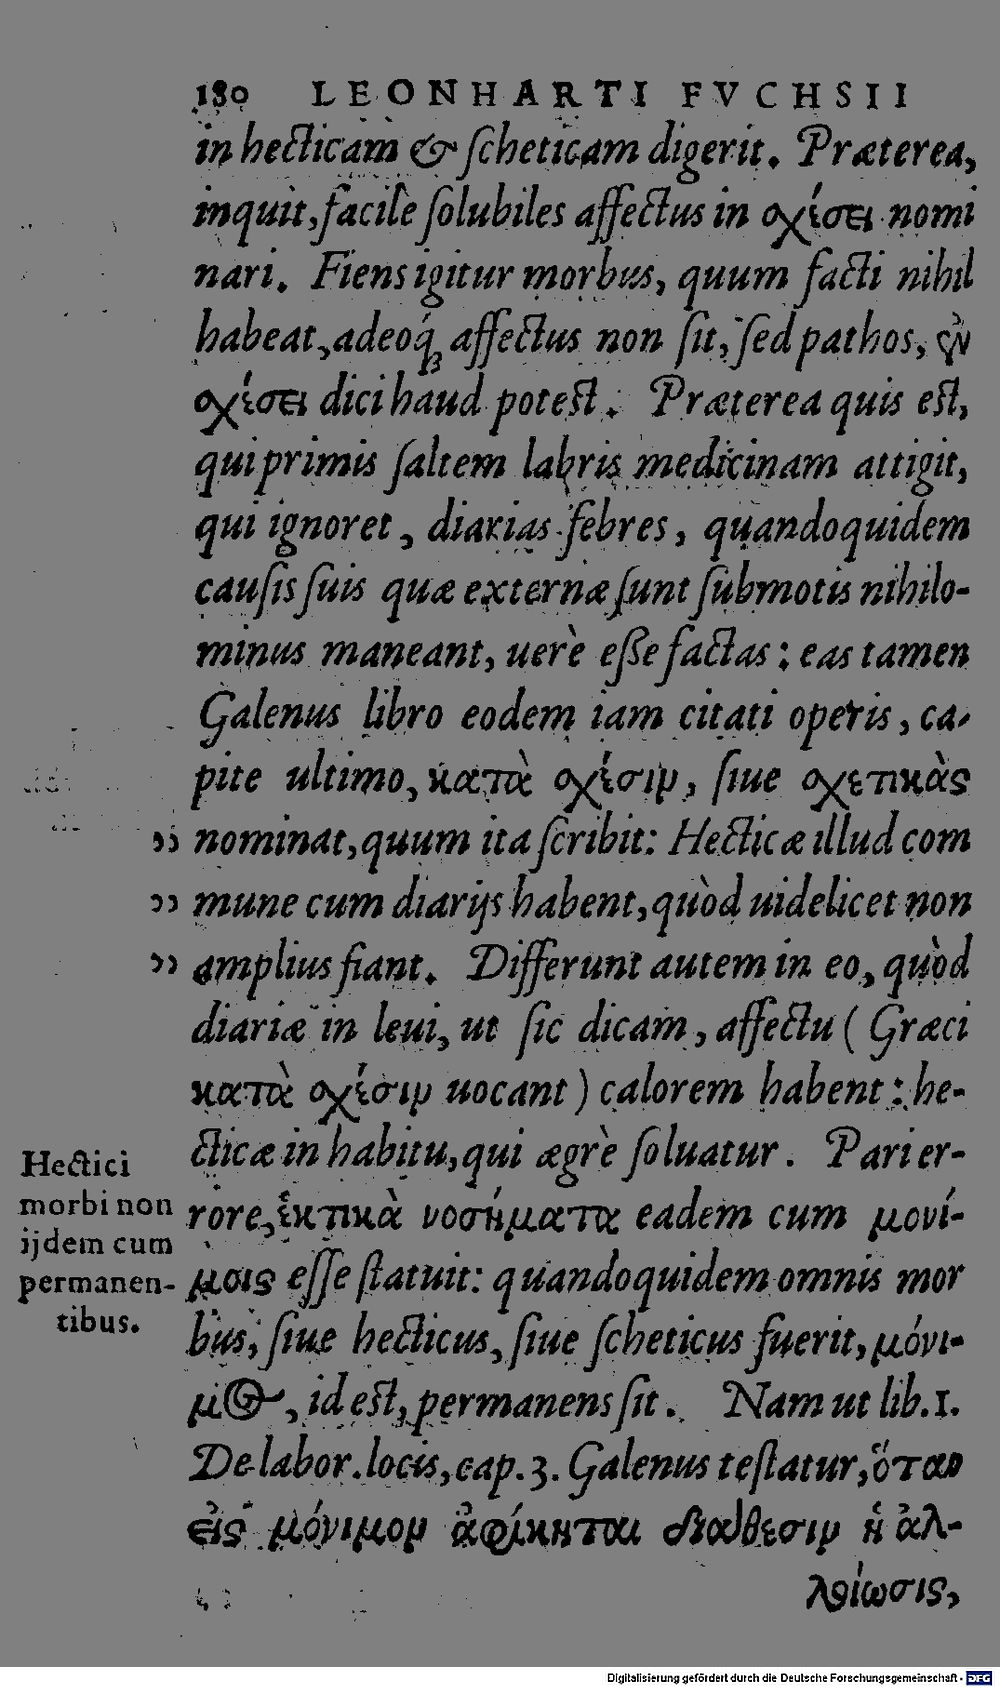 180 LEONHARTI FVCHSII
in hecticam & ſcheticam digerit. Præterea,
inquit, facile ſolubiles affectus in σχέσει nomi
nari. Fiens igitur morbus, quum facti nihil
habeat, adeoq́ꝫ affectus non ſit, ſed pathos, ἐν
σχέσει dici haud potest. Præterea quis est,
qui primis ſaltem labris medicinam attigit,
qui ignoret, diarias febres, quandoquidem
cauſis ſuis quæ externæ ſunt ſubmotis nihilo-
minus maneant, uerè eſſe factas: eas tamen
Galenus libro eodem iam citati operis, ca-
pite ultimo, κατὰ σχέσιν, ſiue σχετικὰς
„ nominat, quum ita ſcribit: Hecticæ illud com
„ mune cum diarijs habent, quòd uidelicet non
„ amplius fiant. Differunt autem in eo, quòd
diariæ in leui, ut ſic dicam, affectu (Græci
κατὰ σχέσιν uocant) calorem habent: he-
cticæ in habitu, qui ægrè ſoluatur. Pari er-
rore, ἑκτικὰ νοσήματα eadem cum μονί-
μοις eſſe ſtatuit: quandoquidem omnis mor
bus, ſiue hecticus, ſiue ſcheticus fuerit, μόνι-
μος, id est, permanens ſit. Nam ut lib.1.
De labor. locis, cap. 3. Galenus teſtatur, ὅταν
εἰς μόνιμον ἀφίκηται διάθεσιν ἡ ἀλ-
λοίωσις,
Hectici
morbi non
ijdem cum
permanen-
tibus.
Digitalisierung gefördert durch die Deutsche Forschungsgemeinschaft - DFG